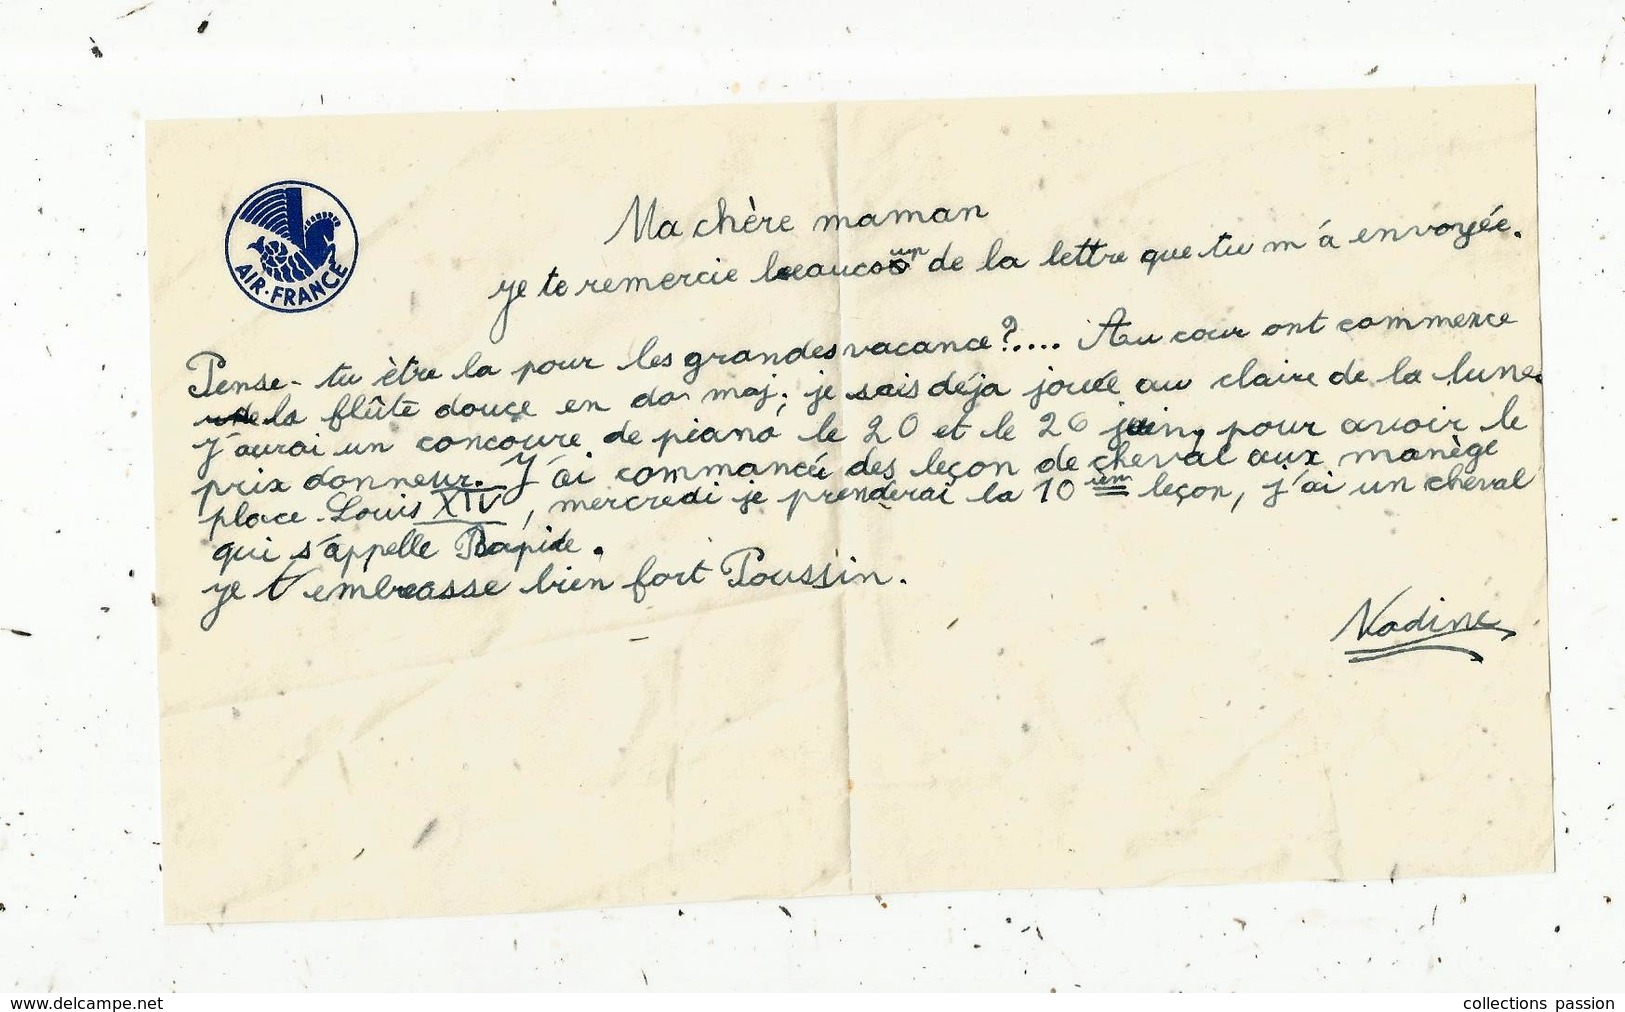 AIR-FRANCE
Ma chère maman
je te remercie beaucoup de la lettre que tu m'á envoyée.
Pense-tu être la pour les grandes vacance?.... Au cour ont commence
la flûte douçe en do maj; je sais déja jouée au claire de la lune.
J'aurai un concoure de piano, le 20 et le 26 juin, pour avoir le
prix donneur. J'ai commancée des leçon de cheval aux manège
place-Louis XIV, mercredi je prenderai la 10 ièm leçon, j'ai un cheval
qui s'appelle Rapide.
je t'embrasse bien fort Poussin.
Nadine
www.delcampe.net
collections passion